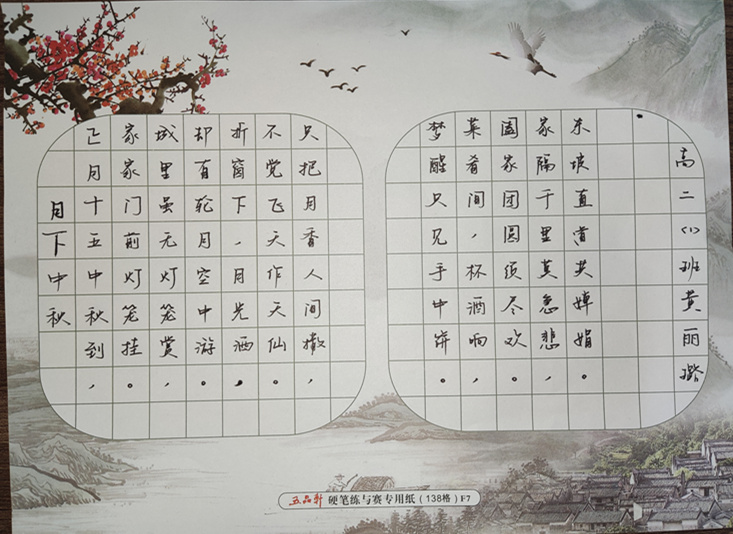 月下中秋
己月十五中秋到，
家家门前灯笼挂。
城里虽无灯笼赏，
却有轮月空中游。
折窗下，月光洒。
不觉飞天作天仙。
只把月香人间撒，
梦醒只见手中饼。
菜肴间，杯酒响，
家团圆须尽欢。
家隔千里莫急悲，
东坡直共婵娟。
高二(1)班黄丽璐
五品轩 硬笔练与赛专用纸（138格）F7